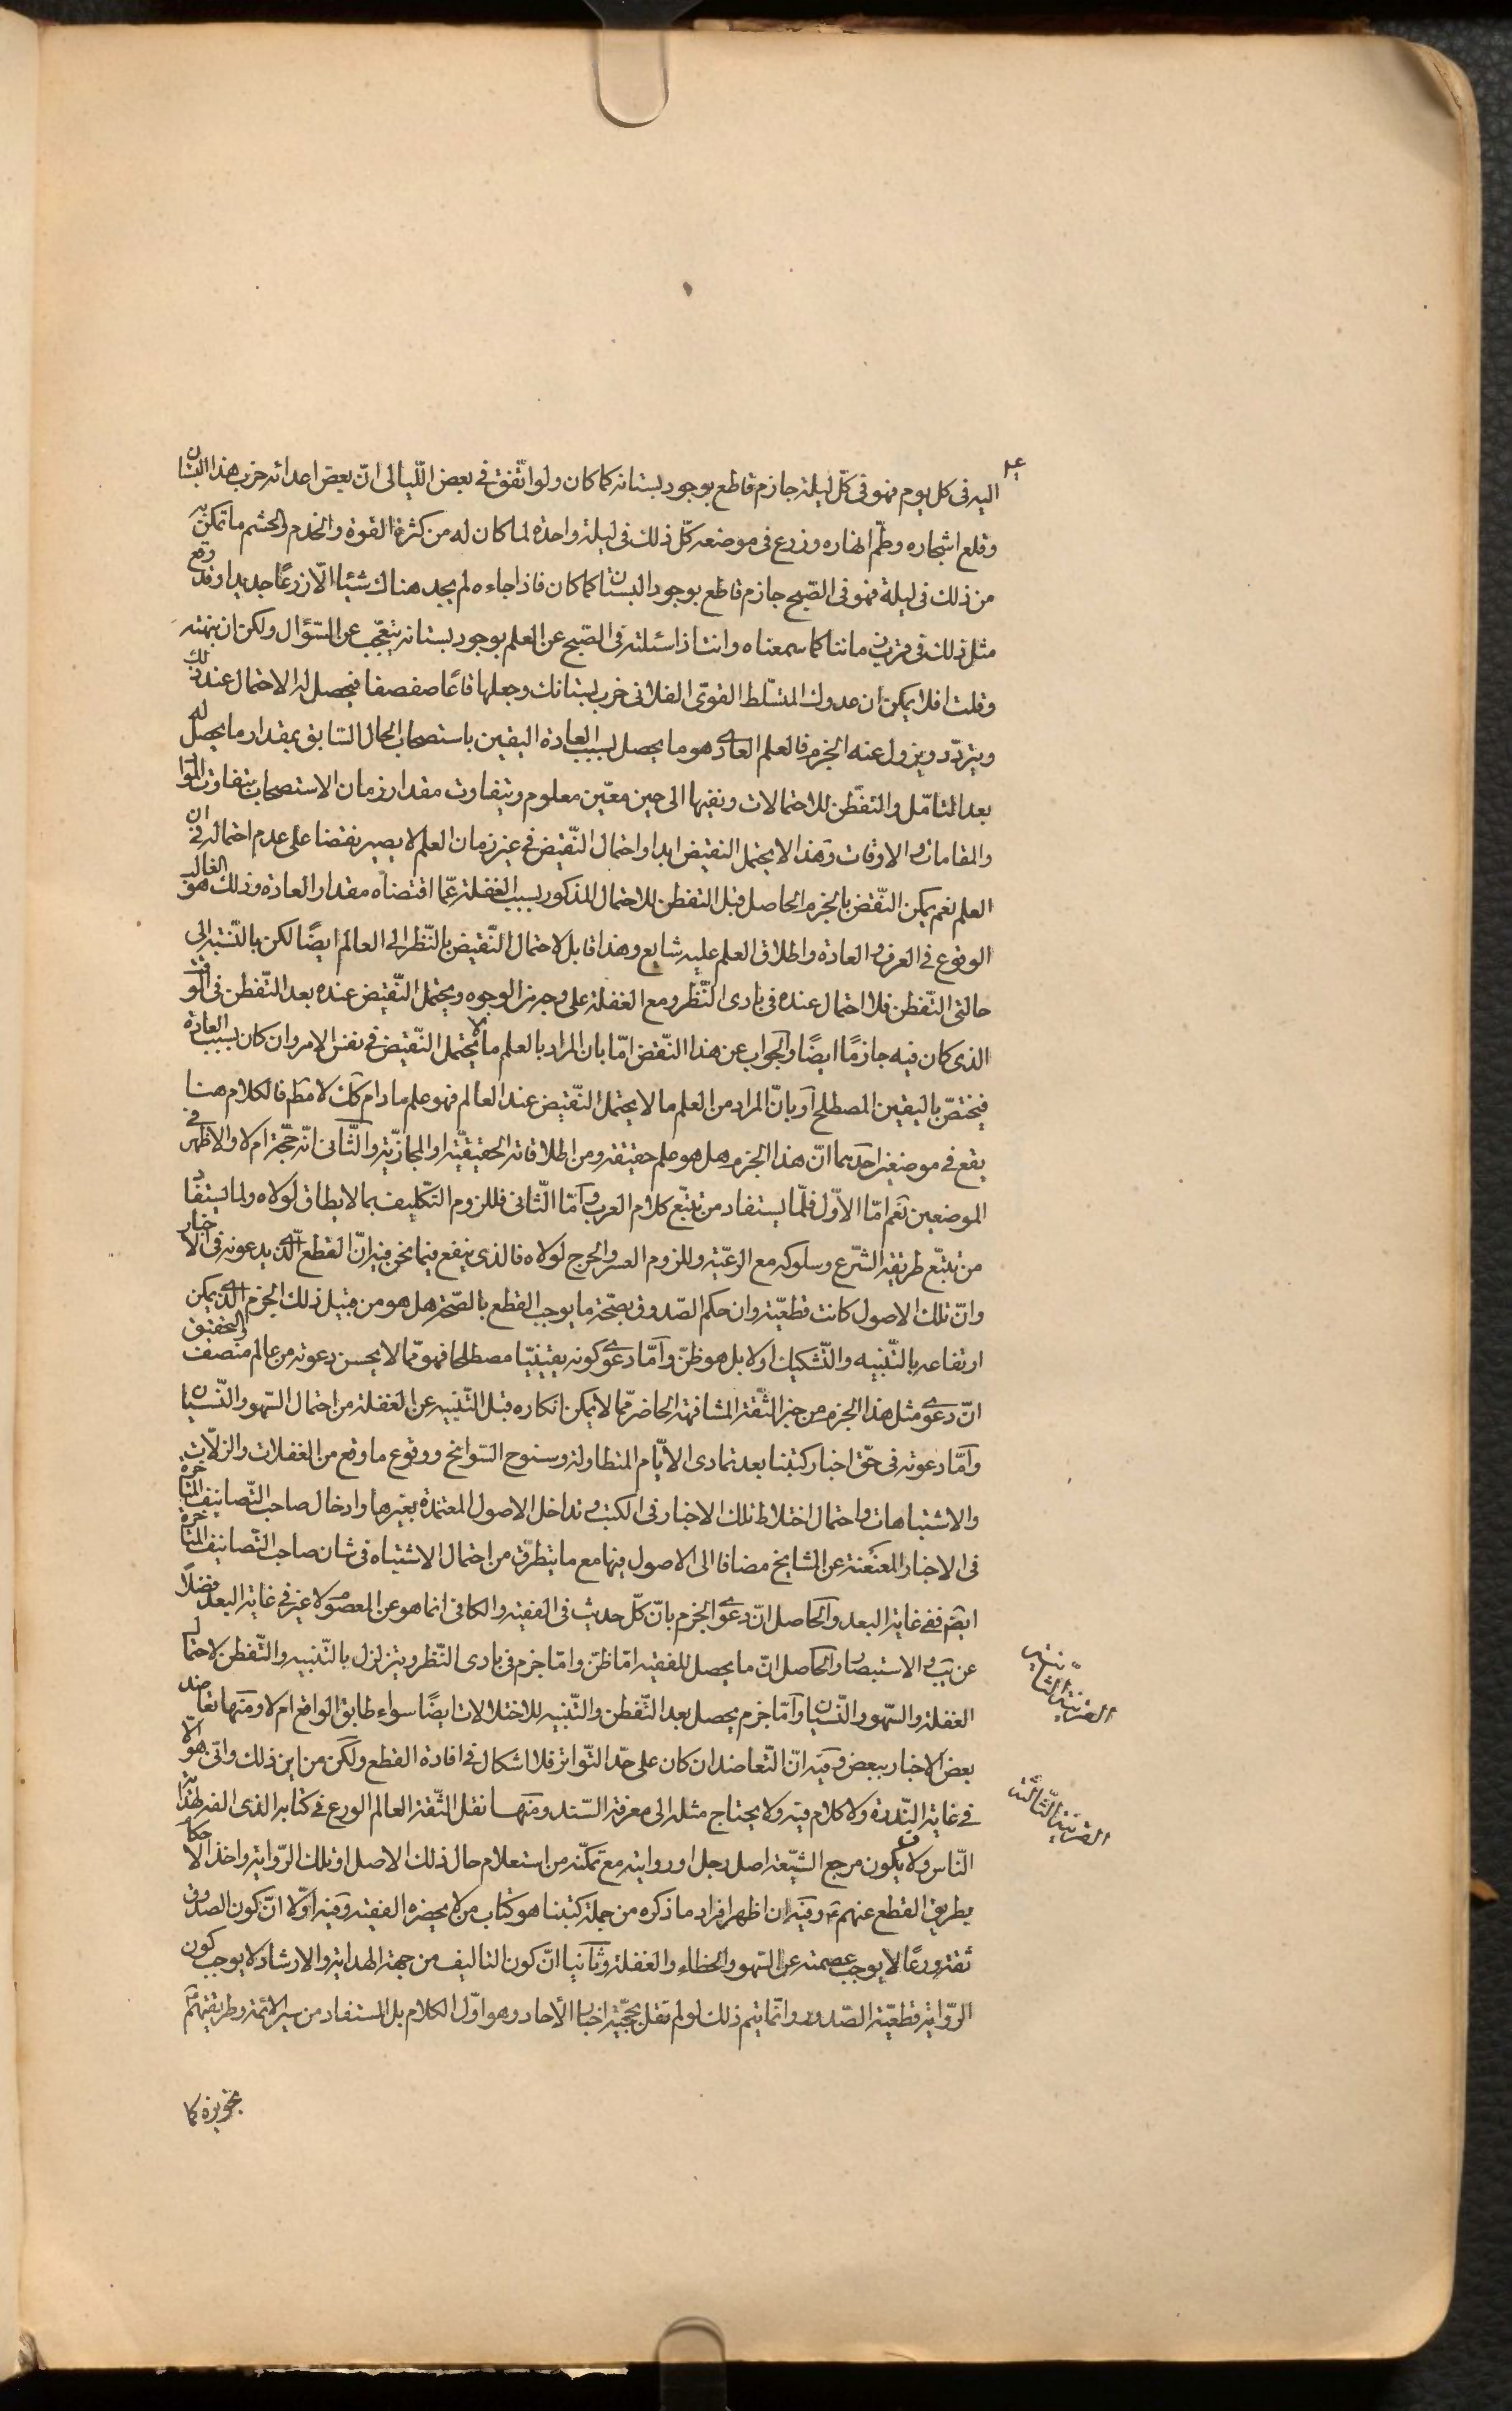 اليه فى كل يوم فهو فى كلّ ليلة جازم قاطع بوجود بستانه كما كان ولو اتّفق فى بعض اللّيالى انّ بعض اعدائه خرب هذا البستان
وقلع اشجاره وطمّ انهاره وزرع فى موضعه كلّ ذلك فى ليلة واحدة لما كان له من كثرة القوة والخدم والحشم ما تمكن به
من ذلك فى ليلة فهو فى الصّبح جازم قاطع بوجود البستان كما كان فاذا جاءه لم يجد هناك شيئا الّا زرعًا جديدا وقد وقع
مثل ذلك فى قرب زماننا كما سمعناه وانت اذا سئلته فى الصّبح عن العلم بوجود بستانه يتعجّب عن السّؤال ولكن ان نبهته
وقلت افلا يمكن ان عدوك المتسّلط القوىّ الفلانى خرب بستانك وجعلها قاعًا صفصفا فيحصل له الاحتمال عند ذلك
ويتردّد ويزول عنه الجزم فالعلم العادى هو ما يحصل بسبب العادة اليقين باستصحاب الحال السّابق بمقدار ما يحصل له
بعد التامّل والتفطّن للاحتمالات ونفيها الى حين معيّن معلوم ويتفاوت مقدار زمان الاستصحاب بتفاوت الموا
والمقامات والاوقات وهذا لا يحتمل النقيض ابدا واحتمال النّقيض فى غير زمان العلم لا يصير نقضا على عدم احتماله فى ان
العلم نعم يمكن النّقض بالجزم الحاصل قبل التفطن للاحتمال المذكور بسبب الغفلة عمّا اقتضاه مقدار العادة وذلك هو الغالب
الوقوع فى العرف والعادة واطلاق العلم عليه شايع وهذا قابل لاحتمال النّقيض بالنّظر الى العالم ايضًا لكن بالنّسبة الى
حالتى التّفطن فلا احتمال عنده فى بادى النّظر ومع الغفلة على وجه من الوجوه ويحتمل النّقيض عنده بعد التّفطن فى الوقت
الذى كان فيه جازمًا ايضًا والجواب عن هذا النّقض امّا بان المراد بالعلم ما لا يحتمل النّقيض فى نفس الامر وان كان بسبب العادة
فيختصّ باليقين المصطلح او بانّ المراد من العلم ما لا يحتمل النّقيض عند العالم فهو علم ما دام كك لا مطم فالكلام هنا
يقع فى موضعين احدهما انّ هذا الجزم هل هو علم حقيقة ومن اطلاقاته الحقيقيّة او المجازيّة والثّانى انّه حجّة ام لا والاظهر فى
الموضعين نعم امّا الاوّل فلما يستفاد من تتبّع كلام العرب وامّا الثّانى فللزوم التّكليف بما لا يطاق لولاه ولما يستفاد
من تتبّع طريقة الشّرع وسلوكه مع الرّعيّة وللزوم العسر والحرج لولاه فالذى ينفع فيما نحن فيه انّ القطع الّذى يدعونه فى الاخبار
وانّ تلك الاصول كانت قطعيّة وان حكم الصّدوق بصحّة ما يوجب القطع بالصّحة هل هو من قبيل ذلك الجزم الّذى يمكن
ارتفاعه بالتّنبيه والتّشكيك اولا بل هو ظنّ وامّا دعوى كونه يقينيّا مصطلحا فهو ممّا لا يحسن دعوته من عالم منصف والتحقيق
انّ دعوى مثل هذا الجزم من خبر الثّقة المشافهة الحاضر ممّا لا يمكن انكاره قبل التّنبيه عن الغفلة من احتمال السّهو والنّسيان
وامّا دعوته فى حقّ اخبار كتبنا بعد تمادى الايّام المتطاولة وسنوح السّوانح ووقوع ما وقع من الغفلات والزلّات
والاشتباهات واحتمال اختلاط تلك الاخبار فى الكتب وتداخل الاصول المعتمدة بغيرها وادخال صاحب التّصانيف المتاخرة
فى الاخبار المعنعنة عن المشايخ مضافا الى الاصول فيها مع ما يتطرّق من احتمال الاشتباه فى شان صاحب التّصانيف المتاخرة
ايضم ففى غاية البعد والحاصل انّ دعوى الجزم بانّ كلّ حديث فى الفقيه والكافى انما هو عن المعصوم لا غير فى غاية البعد فضلًا
عن يب والاستبصار والحاصل انّ ما يحصل للفقيه امّا ظنّ وامّا جزم فى بادى النّظر ويتزلزل بالتّنبيه والتّفطن لاحتمال
الغفلة والسّهو والنّسيان وامّا جزم يحصل بعد التّفطن والتّنبيه للاختلالات ايضًا سواء طابق الواقع ام لا ومنها تعاضد
بعض الاخبار ببعض وفيه انّ التّعاضد ان كان على حدّ التّواتر فلا اشكال فى افادة القطع ولكن من اين ذلك وانّى هو الّا
فى غاية النّدرة ولا كلام فيه ولا يحتاج مثله الى معرفة السّند ومنها نقل الثّقة العالم الورع فى كتابه الذى الفه لهداية
النّاس ولان يكون مرجع الشيّعة اصل رجل او روايته مع تمكنّه من استعلام حال ذلك الاصل او تلك الرّواية واخذ الاحكام
بطريق القطع عنهم ع وفيه ان اظهر افراد ما ذكره من جملة كتبنا هو كتاب من لا يحضره الفقيه وفيه اوّلا انّ كون الصدوق
ثقة ورعًا لا يوجب عصمته عن السّهو والخطاء والغفلة وثانيا انّ كون التاليف من جهة الهداية والارشاد لا يوجب كون
الرّواية قطعيّة الصّدور وانّما يتم ذلك لو لم نقل بحجّية اخبار الاحاد وهو اوّل الكلام بل المستفاد من سير الائمّة وطريقتهم
القرينة الثانية
القرينة الثّالثة
تجويزه كا